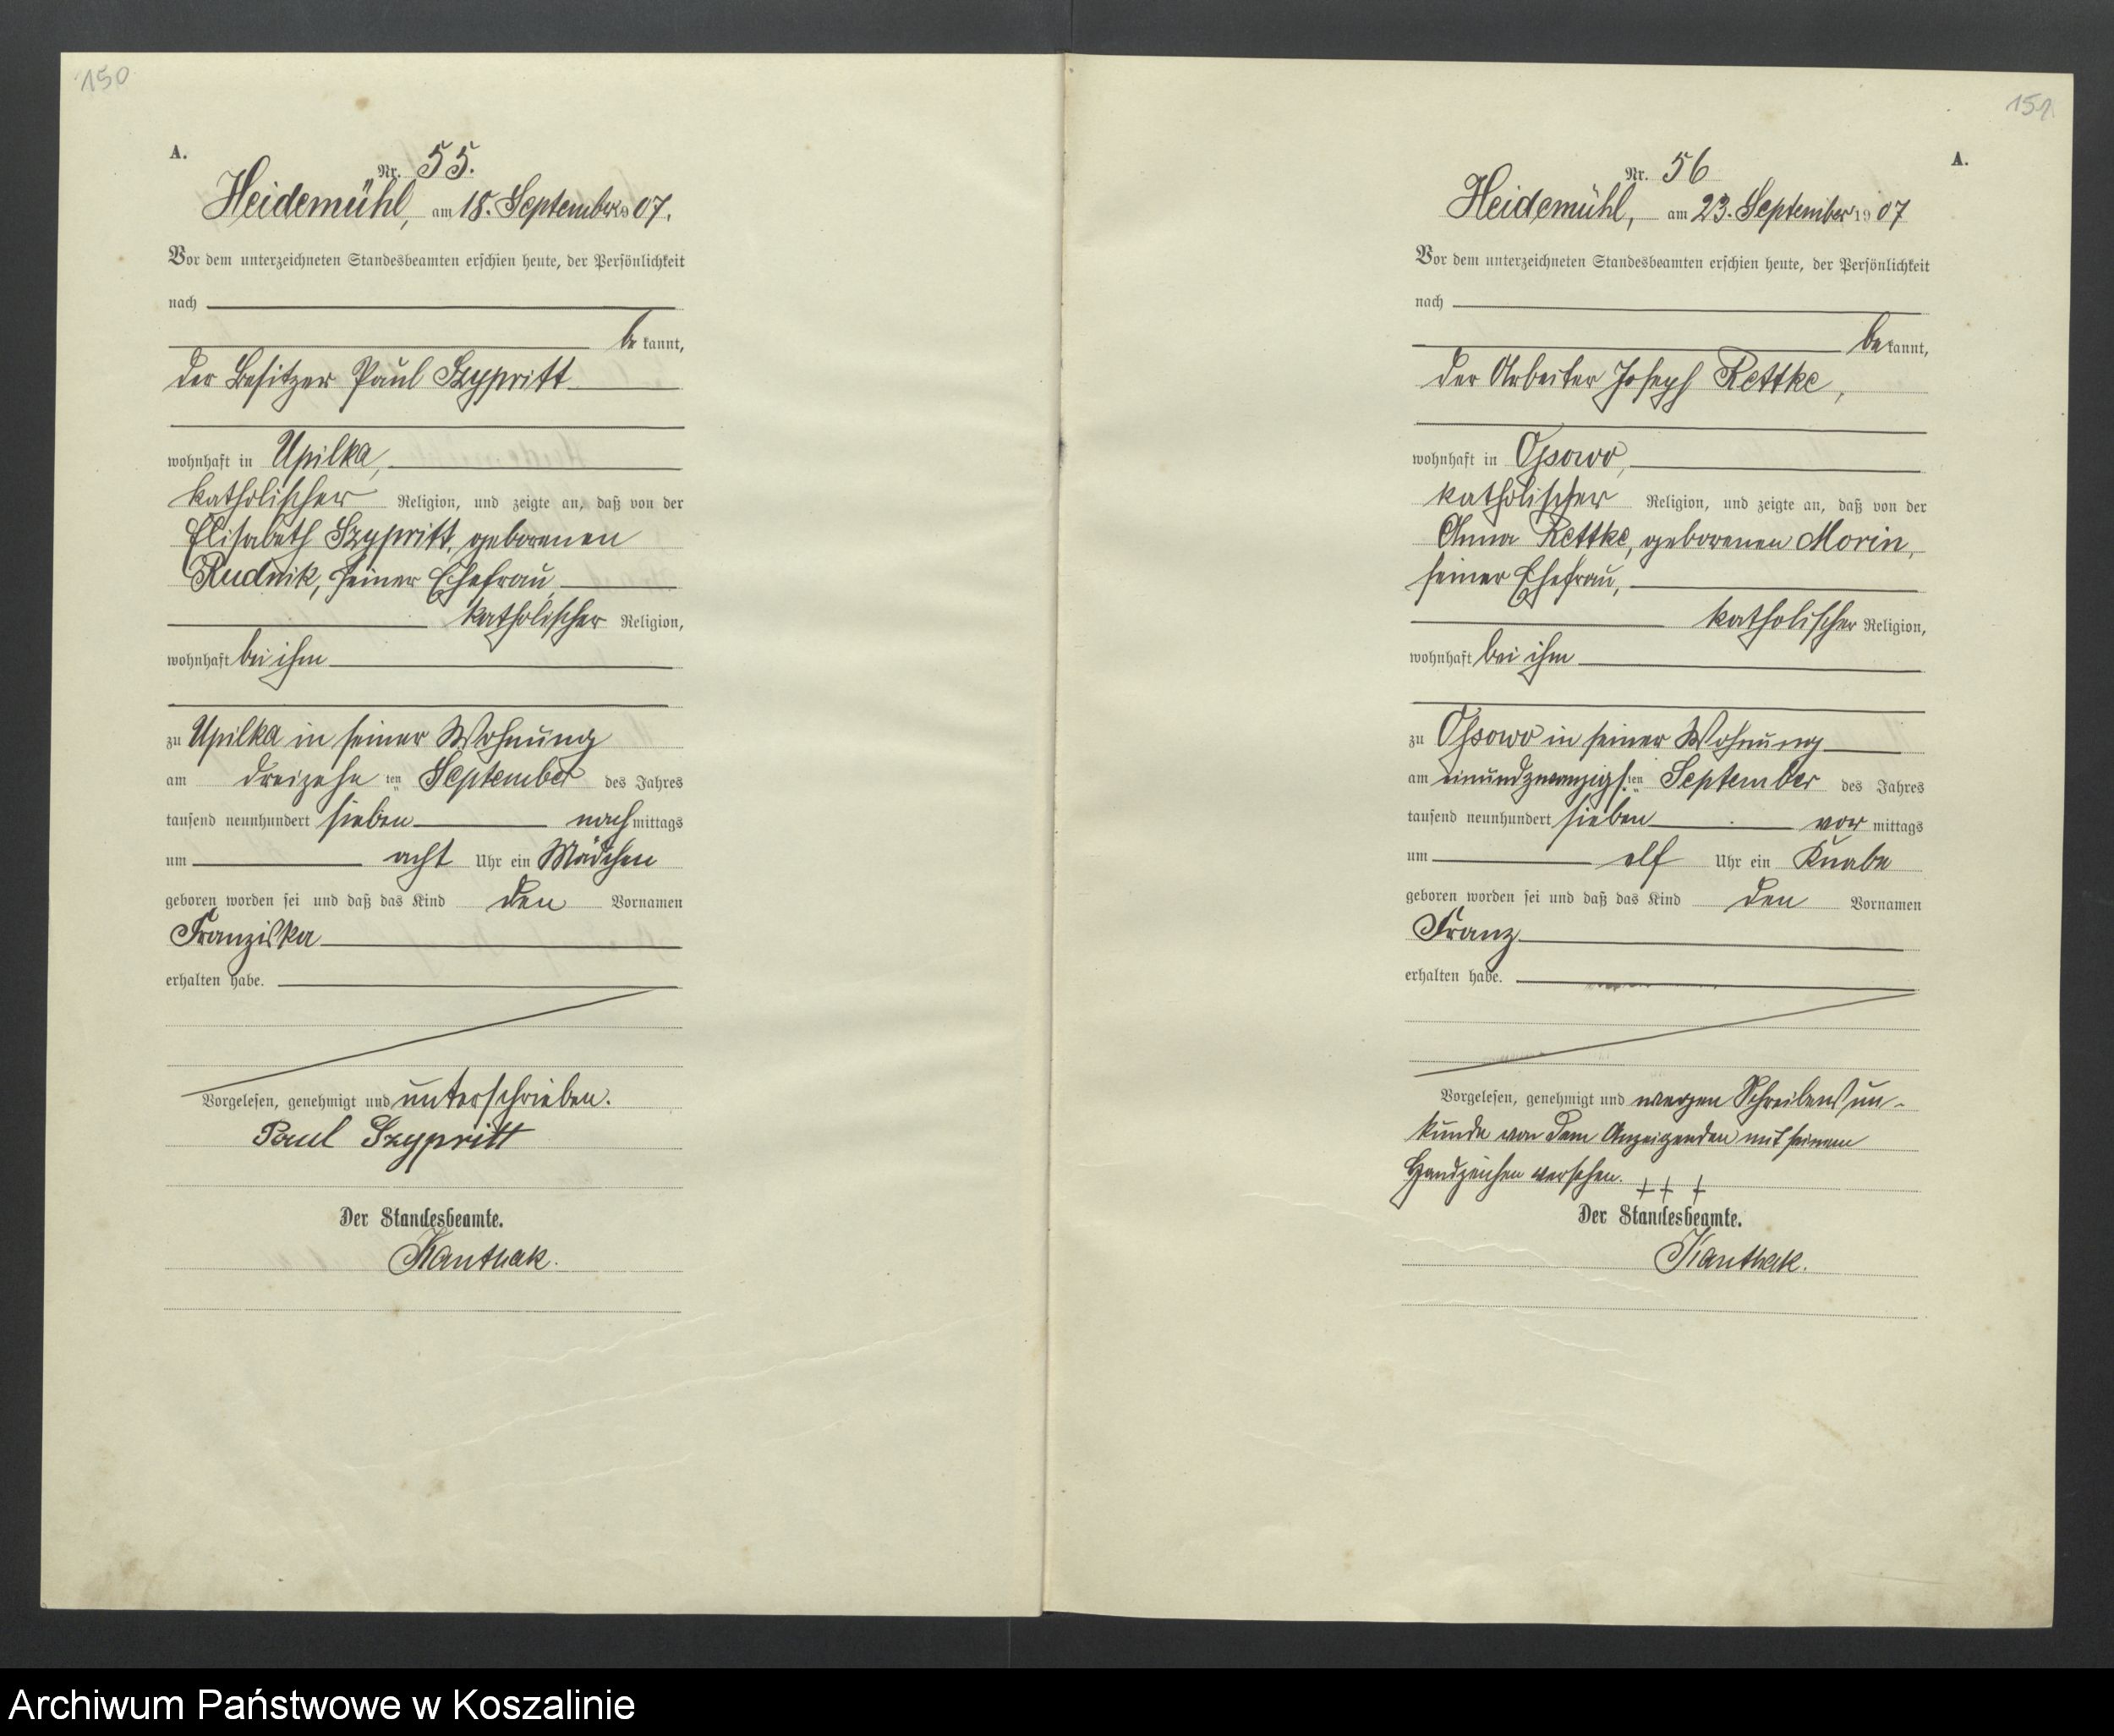 150
A.
Nr. 55.
Heidemühl, am 18. September 1907.
Vor dem unterzeichneten Standesbeamten erschien heute, der Persönlichkeit
nach
be kannt,
der Besitzer Paul Szypritt
wohnhaft in Upilka,
katholischer Religion, und zeigte an, daß von der
Elisabeth Szypritt, geborenen
Rudnik, seiner Ehefrau,
katholischer Religion,
wohnhaft bei ihm
zu Upilka in seiner Wohnung
am dreizehn ten September des Jahres
tausend neunhundert sieben nach mittags
um acht Uhr ein Mädchen
geboren worden sei und daß das Kind den Vornamen
Franziska
erhalten habe.
Vorgelesen, genehmigt und unterschrieben.
Paul Szypritt
Der Standesbeamte.
Kanthak.
151
A.
Nr. 56
Heidemühl, am 23. September 1907
Vor dem unterzeichneten Standesbeamten erschien heute, der Persönlichkeit
nach
be kannt,
der Arbeiter Joseph Rettke,
wohnhaft in Ossowo,
katholischer Religion, und zeigte an, daß von der
Anna Rettke, geborenen Morin,
seiner Ehefrau,
katholischer Religion,
wohnhaft bei ihm
zu Ossowo in seiner Wohnung
am einundzwanzigs ten September des Jahres
tausend neunhundert sieben vor mittags
um elf Uhr ein Knabe
geboren worden sei und daß das Kind den Vornamen
Franz
erhalten habe.
Vorgelesen, genehmigt und wegen Schreibensun-
kunde von dem Anzeigenden mit seinem
Handzeichen versehen. +++
Der Standesbeamte.
Kanthak.
Archiwum Państwowe w Koszalinie